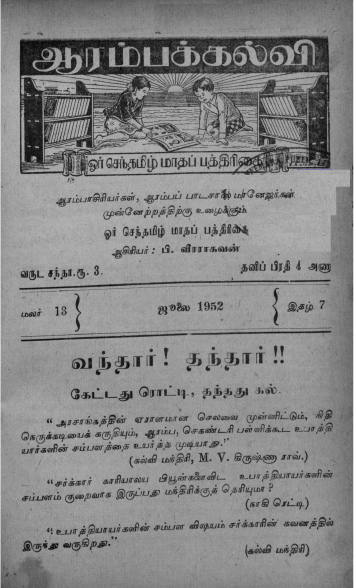 ஆரம்பக்கல்வி
ஓர் செந்தமிழ் மாதப் பத்திரிகை
ஆரம்பாசிரியர்கள், ஆரம்பப் பாடசாலை மானேஜர்கள்
முன்னேற்றத்திற்கு உழைக்கும்
ஓர் செந்தமிழ் மாதப் பத்திரிகை
ஆசிரியர் : பி. வீரராகவன்
வருட சந்தா.ரூ. 3.
தனிப் பிரதி 4 அணா
மலர் 13
ஜூலை 1952
இதழ் 7
வந்தார்! தந்தார்!!
கேட்டது ரொட்டி, தந்தது கல்.
" அரசாங்கத்தின் ஏராளமான செலவை முன்னிட்டும், நிதி
நெருக்கடியைக் கருதியும், ஆரம்ப, செகண்டரி பள்ளிக்கூட உபாத்தி
யார்களின் சம்பளத்தை உயர்த்த முடியாது."
(கல்வி மந்திரி, M. V. கிருஷ்ண ராவ்.)
"சர்க்கார் காரியாலய பியூன்களைவிட உபாத்தியாயர்களின்
சம்பளம் குறைவாக இருப்பது மந்திரிக்குத் தெரியுமா ?
(நாகி ரெட்டி.)
"உபாத்தியாயர்களின் சம்பள விஷயம் சர்க்காரின் கவனத்தில்
இருந்து வருகிறது."
(கல்வி மந்திரி)